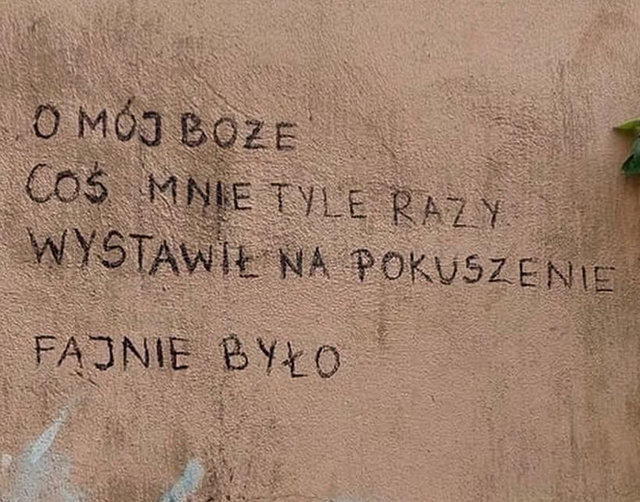 O MÓJ BOZE
COŚ MNIE TYLE RAZY
WYSTAWIŁ NA POKUSZENIE
FAJNIE BYŁO